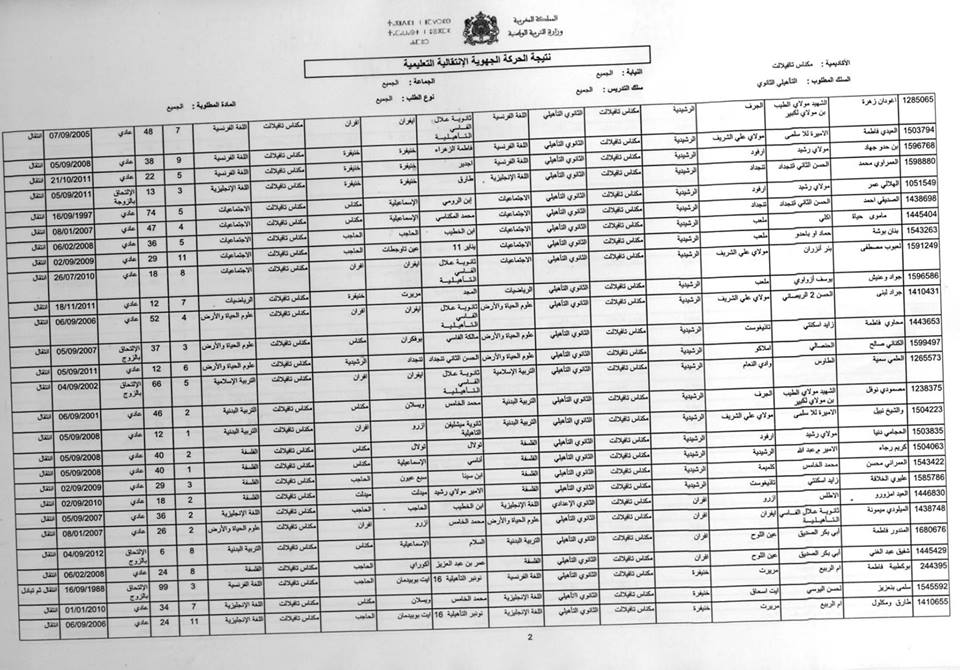 المملكة المغربية
وزارة التربية الوطنية
نتيجة الحركة الجهوية الإنتقالية التعليمية
الأكاديمية : مكناس تافيلالت النيابة : الجميع الجماعة : الجميع
السلك المطلوب : التأهيلي الثانوي سلك التدريس : الجميع نوع الطلب : الجميع المادة المطلوبة : الجميع
1285065 اغودان زهرة الشهيد مولاي الطيب بن مولاي لكبير الجرف الرشيدية مكناس تافيلالت الثانوي التأهيلي اللغة الفرنسية ثانوية علال الفاسي التأهيلية ايفران افران مكناس تافيلالت اللغة الفرنسية 7 48 عادي 07/09/2005 انتقال
1503794 العيدي فاطمة الاميرة للا سلمى مولاي علي الشريف الرشيدية مكناس تافيلالت الثانوي التأهيلي اللغة الفرنسية فاطمة الزهراء خنيفرة خنيفرة مكناس تافيلالت اللغة الفرنسية 9 38 عادي 05/09/2008 انتقال
1596768 بن حدو جهاد مولاي رشيد ارفود الرشيدية مكناس تافيلالت الثانوي التأهيلي اللغة الفرنسية اجدير خنيفرة خنيفرة مكناس تافيلالت اللغة الفرنسية 5 22 عادي 21/10/2011 انتقال
1598880 العمراوي محمد الحسن الثاني تنجداد تنجداد الرشيدية مكناس تافيلالت الثانوي التأهيلي اللغة الإنجليزية طارق خنيفرة خنيفرة مكناس تافيلالت اللغة الإنجليزية 3 13 الإلتحاق بالزوجة 05/09/2011 انتقال
1051549 الهلالي عمر مولاي رشيد ارفود الرشيدية مكناس تافيلالت الثانوي التأهيلي الاجتماعيات إبن الرومي الإسماعيلية مكناس مكناس تافيلالت الاجتماعيات 5 74 عادي 16/09/1997 انتقال
1438698 الصديقي احمد الحسن الثاني تنجداد تنجداد الرشيدية مكناس تافيلالت الثانوي التأهيلي الاجتماعيات محمد المكناسي الإسماعيلية مكناس مكناس تافيلالت الاجتماعيات 4 47 عادي 08/01/2007 انتقال
1445404 ماموى حياة اكلي ملعب الرشيدية مكناس تافيلالت الثانوي التأهيلي الاجتماعيات ابن الخطيب الحاجب الحاجب مكناس تافيلالت الاجتماعيات 5 36 عادي 06/02/2008 انتقال
1543263 بنان بوشة حماد أو باحدو ملعب الرشيدية مكناس تافيلالت الثانوي التأهيلي الاجتماعيات 11 يناير عين تاوجطات الحاجب مكناس تافيلالت الاجتماعيات 11 29 عادي 02/09/2009 انتقال
1591249 لعبوب مصطفى بئر انزران مولاي علي الشريف الرشيدية مكناس تافيلالت الثانوي التأهيلي الاجتماعيات ثانوية علال الفاسي التأهيلية ايفران افران مكناس تافيلالت الاجتماعيات 8 18 عادي 26/07/2010 انتقال
1596586 جواد وعنيش يوسف أزواوي ملعب الرشيدية مكناس تافيلالت الثانوي التأهيلي الرياضيات المجد مريرت خنيفرة مكناس تافيلالت الرياضيات 7 12 عادي 18/11/2011 انتقال
1410431 جراد لبنى الحسن 2 الريصاني مولاي علي الشريف الرشيدية مكناس تافيلالت الثانوي التأهيلي علوم الحياة والأرض ثانوية علال الفاسي التأهيلية ايفران افران مكناس تافيلالت علوم الحياة والأرض 4 52 عادي 06/09/2006 انتقال
1443653 محاوي فاطمة زايد اسكنتي تاديغوست الرشيدية مكناس تافيلالت الثانوي التأهيلي علوم الحياة والأرض مالكة الفاسي بوفكران مكناس مكناس تافيلالت علوم الحياة والأرض 3 37 الإلتحاق بالزوج 05/09/2007 انتقال
1599497 الكتاني صالح الحنصالي املاكو الرشيدية مكناس تافيلالت الثانوي التأهيلي علوم الحياة والأرض الحسن الثاني تنجداد تنجداد الرشيدية مكناس تافيلالت علوم الحياة والأرض 6 12 عادي 05/09/2011 انتقال
1265573 سمية الطاوس وادي النعام الرشيدية مكناس تافيلالت الثانوي التأهيلي التربية الإسلامية ثانوية علال الفاسي التأهيلية ايفران افران مكناس تافيلالت التربية الإسلامية 5 66 الإلتحاق بالزوج 04/09/2002 انتقال
1238375 مصمودي نوفل الشهيد مولاي الطيب بن مولاي لكبير الجرف الرشيدية مكناس تافيلالت الثانوي التأهيلي التربية البدنية محمد الخامس ويسلان مكناس مكناس تافيلالت التربية البدنية 2 46 عادي 06/09/2001 انتقال
1504223 والشيخ نبيل الاميرة للا سلمى مولاي علي الشريف الرشيدية مكناس تافيلالت الثانوي التأهيلي التربية البدنية ثانوية ميشليفن التأهيلية ازرو افران مكناس تافيلالت التربية البدنية 1 12 عادي 05/09/2008 انتقال
1503835 الحجامي دنيا مولاي رشيد ارفود الرشيدية مكناس تافيلالت الثانوي التأهيلي الفلسفة تولال تولال مكناس مكناس تافيلالت الفلسفة 2 40 عادي 05/09/2008 انتقال
1504063 كريم رجاء الامير م.عبد الله الرشيدية الرشيدية مكناس تافيلالت الثانوي التأهيلي الفلسفة أناسي الإسماعيلية مكناس مكناس تافيلالت الفلسفة 1 40 عادي 05/09/2008 انتقال
1543422 العمراني محسن محمد الخامس كلميمة الرشيدية مكناس تافيلالت الثانوي التأهيلي الفلسفة ابن سينا سبع عيون الحاجب مكناس تافيلالت الفلسفة 3 29 عادي 02/09/2009 انتقال
1585786 عليوي الخلافة زايد اسكنتي تاديغوست الرشيدية مكناس تافيلالت الثانوي التأهيلي الفلسفة الامير مولاي رشيد ميدلت ميدلت مكناس تافيلالت الفلسفة 2 18 عادي 02/09/2010 انتقال
1446830 العيد امزورو الاطلس ازرو افران مكناس تافيلالت الثانوي الإعدادي اللغة الإنجليزية ابن الخطيب الحاجب الحاجب مكناس تافيلالت اللغة الإنجليزية 2 36 عادي 05/09/2007 انتقال
1438748 الميلودي ميمونة ثانوية علال الفاسي التأهيلية ايفران افران مكناس تافيلالت الثانوي التأهيلي علوم الحياة والأرض محمد الخامس ازرو افران مكناس تافيلالت علوم الحياة والأرض 2 26 عادي 08/01/2007 انتقال
1680676 المندور فاطمة أبي بكر الصديق عين اللوح افران مكناس تافيلالت الثانوي التأهيلي التربية البدنية السلام الإسماعيلية مكناس مكناس تافيلالت التربية البدنية 8 6 الإلتحاق بالزوج 04/09/2012 انتقال
1445429 شفيق عبد الغني أبي بكر الصديق عين اللوح افران مكناس تافيلالت الثانوي التأهيلي الفلسفة عمر بن عبد العزيز أكوراي الحاجب مكناس تافيلالت الفلسفة 8 24 عادي 06/02/2008 انتقال
244395 بوكطيبة فاطمة ام الربيع مريرت خنيفرة مكناس تافيلالت الثانوي التأهيلي اللغة الفرنسية 16 نونبر التأهيلية ايت بوبيدمان الحاجب مكناس تافيلالت اللغة الفرنسية 3 99 الإلتحاق بالزوج 16/09/1988 انتقال ثم تبادل
1545592 سلمى بنعزيز لحسن اليوسي ايت اسحاق خنيفرة مكناس تافيلالت الثانوي التأهيلي اللغة الإنجليزية محمد الخامس ويسلان مكناس مكناس تافيلالت اللغة الإنجليزية 7 34 عادي 01/01/2010 انتقال
1410655 طارق ومكلول ام الربيع مريرت خنيفرة مكناس تافيلالت الثانوي التأهيلي اللغة الإنجليزية 16 نونبر التأهيلية ايت بوبيدمان الحاجب مكناس تافيلالت اللغة الإنجليزية 11 24 عادي 06/09/2006 انتقال
2